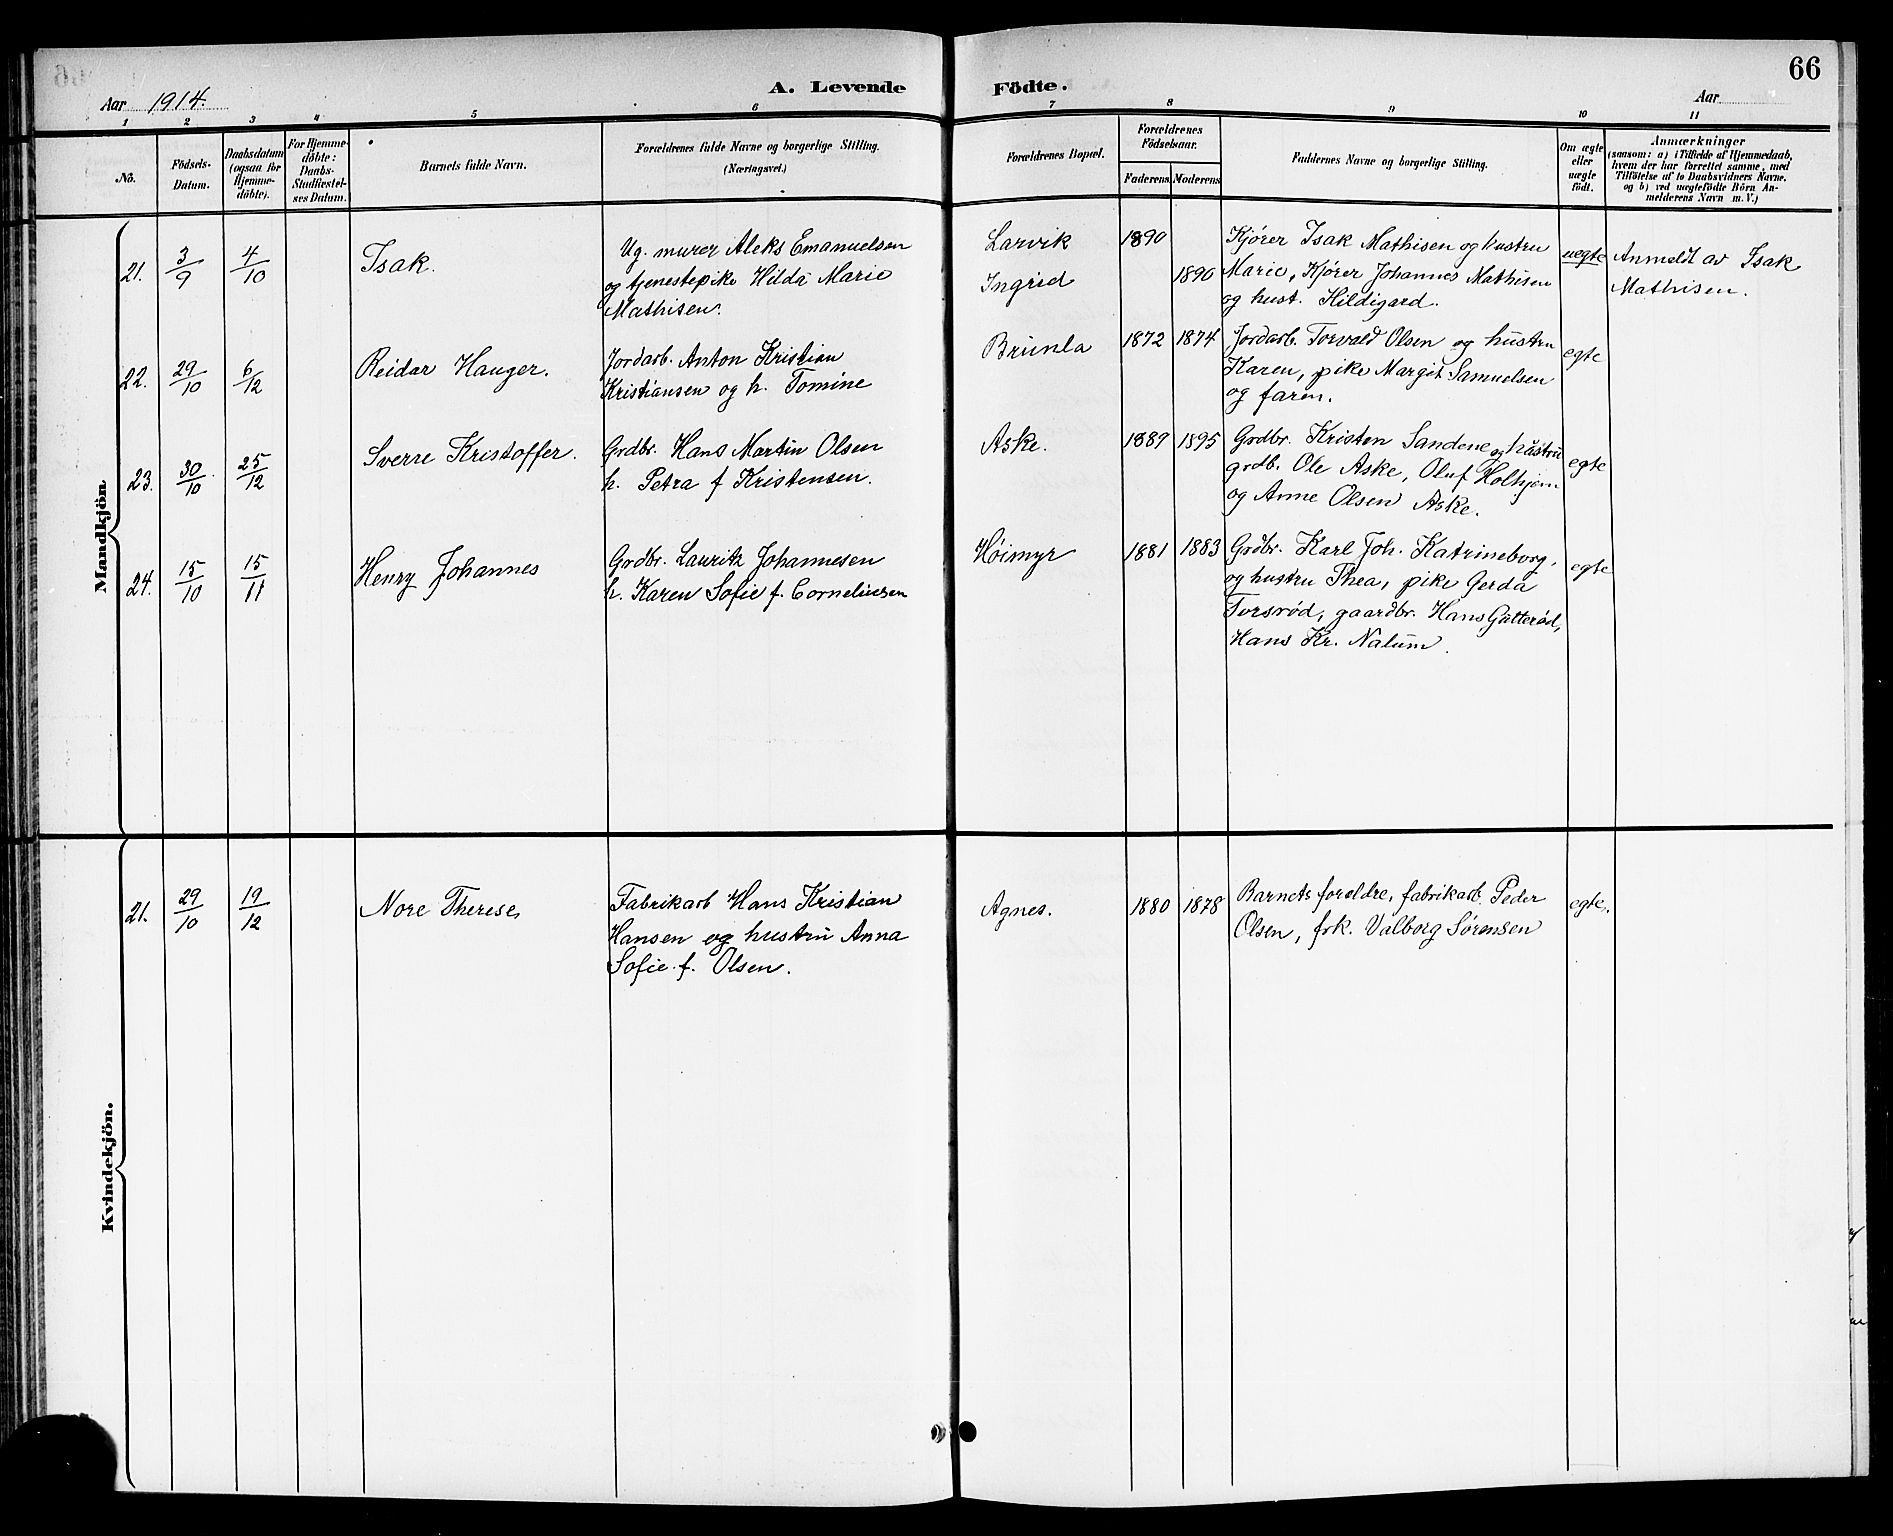 66
Aar 1914.
A. Levende Födte.
Aar
1 2 3 4 5 6 7 8 9 10 11
No.
Födsels-
Datum.
Daabsdatum
(ogsaa for
Hjemme-
döbte).
For Hjemme-
döbte:
Daabs-
Stadfæstel-
ses Datum.
Barnets fulde Navn.
Forældrenes fulde Navne og borgerlige Stilling.
(Næringsvei.)
Forældrenes Bopæl.
Forældrenes
Födselsaar.
Faderens Moderens
Faddernes Navne og borgerlige Stilling.
Om ægte
eller
uægte
födt.
Anmærkninger
(saasom: a) i Tilfælde af Hjemmedaab,
hvem der har forrettet samme, med
Tilföielse af to Daabsvidners Navne.
og b) ved uægtefödte Börn An-
melderens Navn m. V.)
Mandkjön
21. 3/9 4/10 Isak.
Ug. murer Aleks Emanuelsen
og tjenestepike Hilda Marie
Mathisen.
Larvik 1890
Ingrid 1890
Kjører Isak Mathisen og hustru
Marie, Kjører Johannes Mathisen
og hust. Hildigard.
uegte
Anmeldt av Isak
Mathisen.
22. 29/10 6/12 Reidar Hauger.
Jordarb. Anton Kristian
Kristiansen og h. Tomine
Brunla 1872 1874
Jordarb. Torvald Olsen og hustru
Karen, pike Margit Samuelsen
og faren.
egte
23. 30/10 25/12 Sverre Kristoffer.
Grdbr. Hans Martin Olsen
h. Petra f Kristensen.
Aske. 1889 1895
Grdbr. Kristen Sandene og hustru
grdb. Ole Aske, Oluf Holhjem
og Anne Olsen Aske.
egte
24. 15/10 15/11 Henry Johannes
Grdbr. Lauritz Johannesen
h. Karen Sofie f. Corneliusen
Høimyr 1881 1883
Grdbr. Karl Joh. Katrineborg,
og hustru Thea, pike Gerda
Torsrød, gaardbr. Hans Gutterød,
Hans Kr. Nalum.
egte
Kvindekjön.
21. 29/10 19/12 Nore Therese,
Fabrikarb Hans Kristian
Hansen og hustru Anna
Sofie f. Olsen.
Agnes. 1880 1878
Barnets foreldre, fabrikarb. Peder
Olsen, frk. Valborg Sørensen
egte.